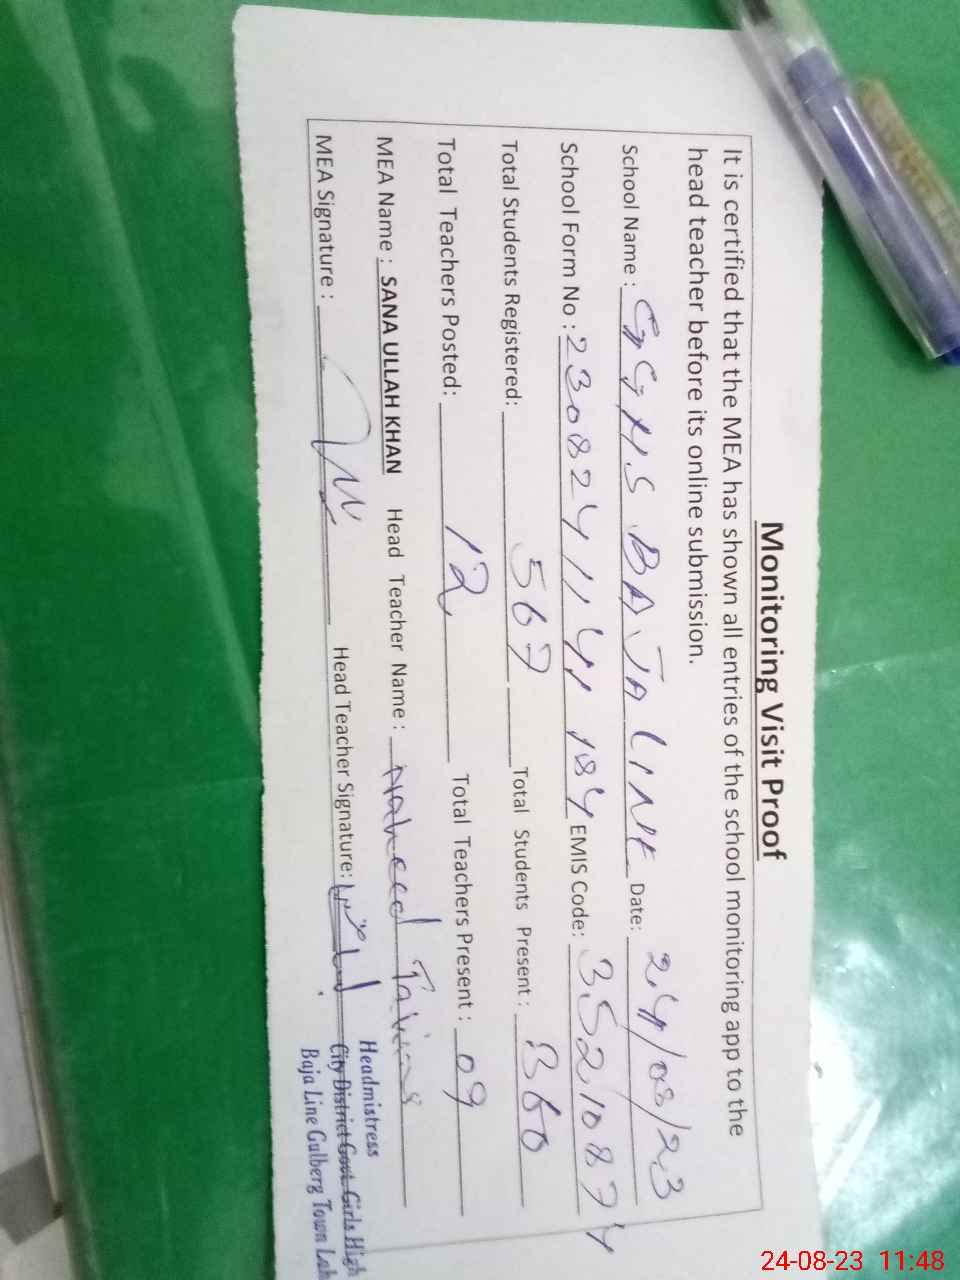 Monitoring Visit Proof
It is certified that the MEA has shown all entries of the school monitoring app to the
head teacher before its online submission.
School Name : GGHS BAJALINE Date: 24/08/23
School Form No : 23082411 44 184 EMIS Code: 35210874
Total Students Registered: 567 Total Students Present : 360
Total Teachers Posted: 12 Total Teachers Present : 09
MEA Name : SANA ULLAH KHAN Head Teacher Name :
MEA Signature : Head Teacher Signature:
Headmistress
City District Govt. Girls High
Baja Line Gulberg Town Lah
24-08-23 11:48